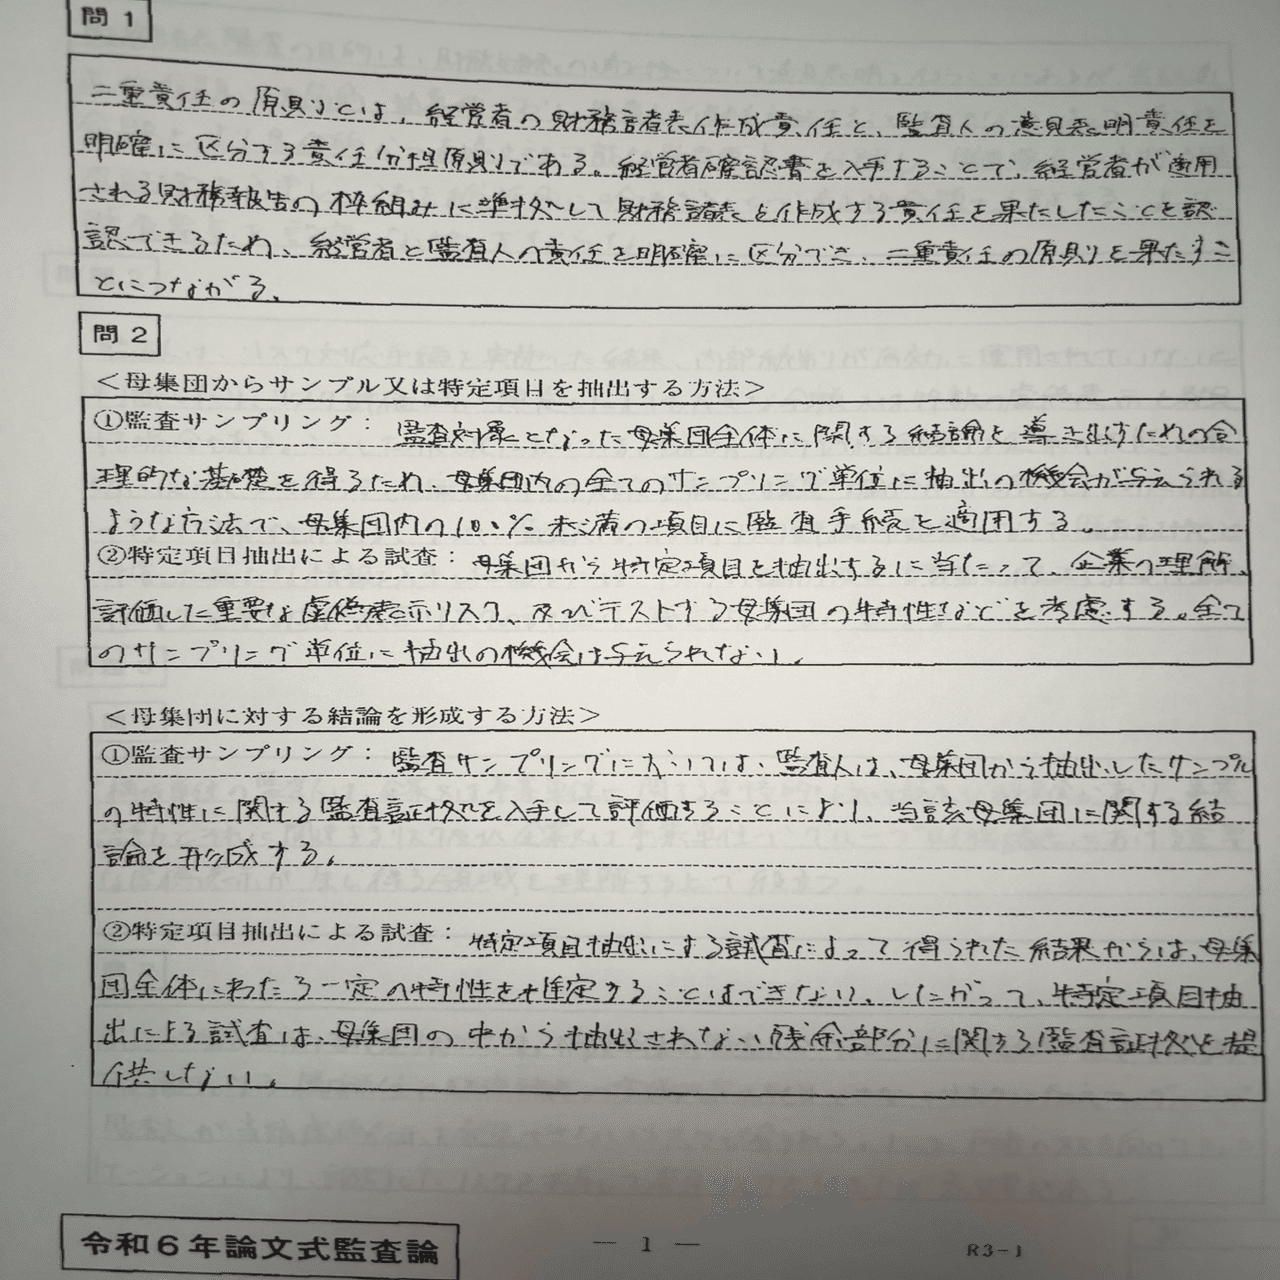 問1
二重責任の原則とは、経営者の財務諸表作成責任と、監査人の意見表明責任を
明確に区分する責任分担原則である。経営者確認書を入手することで、経営者が適用
される財務報告の枠組みに準拠して財務諸表を作成する責任を果たしたことを認
認できるため、経営者と監査人の責任を明確に区分でき、二重責任の原則を果たすこ
とにつながる。
問2
＜母集団からサンプル又は特定項目を抽出する方法＞
①監査サンプリング：監査対象となった母集団全体に関する結論を導き出すための合
理的な基礎を得るため、母集団内の全てのサンプリング単位に抽出の機会が与えられる
ような方法で、母集団内の100%未満の項目に監査手続を適用する。
②特定項目抽出による試査：母集団から特定項目を抽出するに当たって、企業の理解、
評価した重要な虚偽表示リスク、及びテストする母集団の特性などを考慮する。全て
のサンプリング単位に抽出の機会は与えられない。
＜母集団に対する結論を形成する方法＞
①監査サンプリング：監査サンプリングにおいては、監査人は、母集団から抽出したサンプル
の特性に関する監査証拠を入手して評価することにより、当該母集団に関する結
論を形成する。
②特定項目抽出による試査：特定項目抽出にする試査によって得られた結果からは、母集
団全体にわたる一定の特性を推定することはできない。したがって、特定項目抽
出による試査は、母集団の中から抽出されない残余部分に関する監査証拠を提
供しない。
令和6年論文式監査論
— 1 —
R3-1